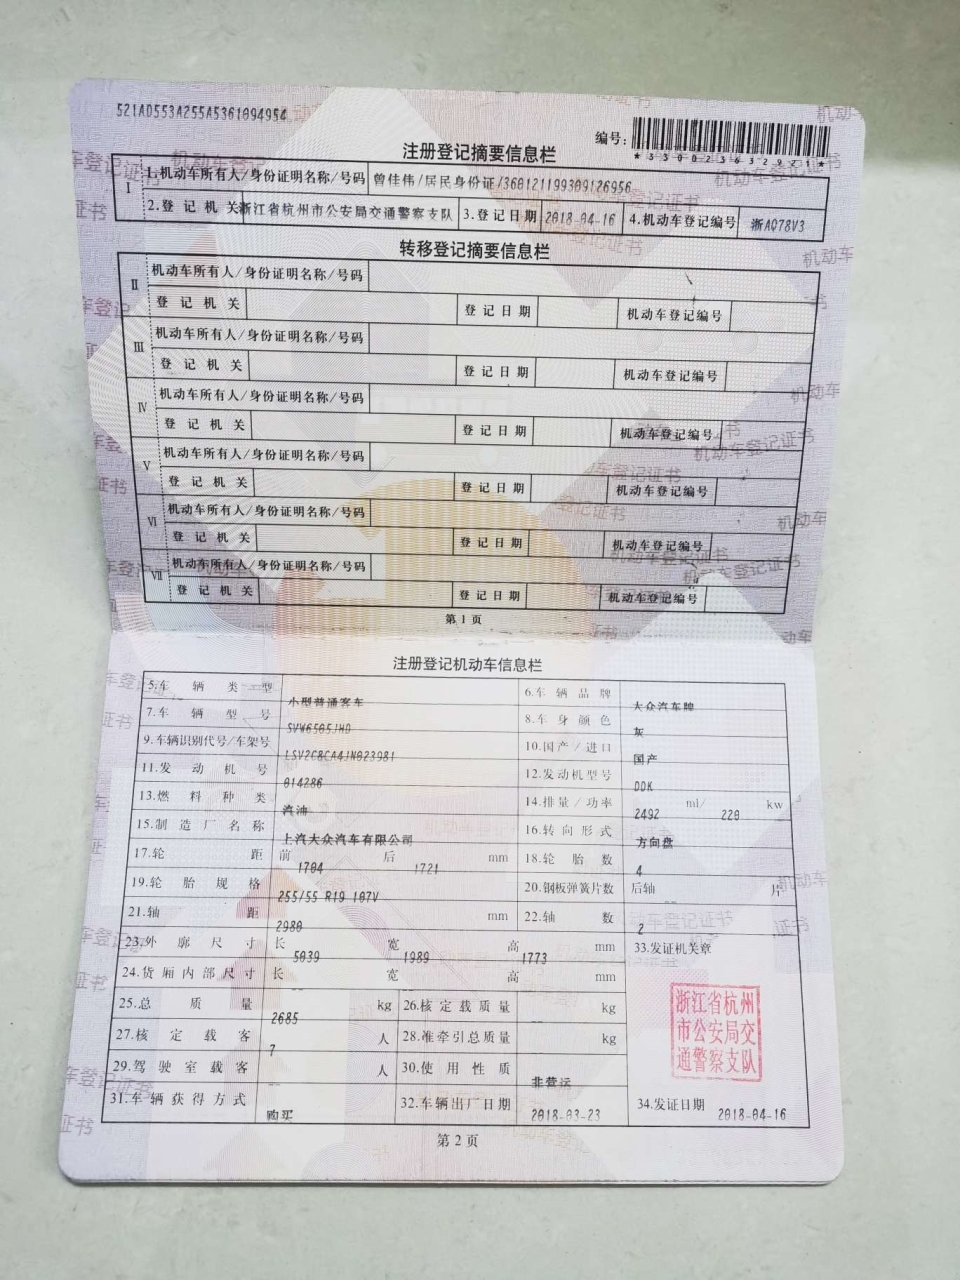 521AD553A255A5361094954
编号:
*330023632921*
注册登记摘要信息栏
I 1.机动车所有人/身份证明名称/号码 曾佳伟/居民身份证/360121199309126956
2.登记机关 浙江省杭州市公安局交通警察支队 3.登记日期 2018-04-16 4.机动车登记编号 浙AQ78V3
转移登记摘要信息栏
II 机动车所有人/身份证明名称/号码
登记机关 登记日期 机动车登记编号
III 机动车所有人/身份证明名称/号码
登记机关 登记日期 机动车登记编号
IV 机动车所有人/身份证明名称/号码
登记机关 登记日期 机动车登记编号
V 机动车所有人/身份证明名称/号码
登记机关 登记日期 机动车登记编号
VI 机动车所有人/身份证明名称/号码
登记机关 登记日期 机动车登记编号
VII 机动车所有人/身份证明名称/号码
登记机关 登记日期 机动车登记编号
第1页
注册登记机动车信息栏
5.车辆类型 小型普通客车 6.车辆品牌 大众汽车牌
7.车辆型号 SVW6505JHD 8.车身颜色 灰
9.车辆识别代号/车架号 LSV2C8CA4JN023981 10.国产/进口 国产
11.发动机号 014286 12.发动机型号 DDK
13.燃料种类 汽油 14.排量/功率 2492 ml/ 220 kw
15.制造厂名称 上汽大众汽车有限公司 16.转向形式 方向盘
17.轮距 前 1704 后 1721 mm 18.轮胎数 4
19.轮胎规格 255/55 R19 107V 20.钢板弹簧片数 后轴 -- 片
21.轴距 2980 mm 22.轴数 2
23.外廓尺寸 长 5039 宽 1989 高 1773 mm 33.发证机关章
24.货厢内部尺寸 长 -- 宽 -- 高 -- mm
25.总质量 2685 kg 26.核定载质量 -- kg
27.核定载客 7 人 28.准牵引总质量 -- kg
29.驾驶室载客 -- 人 30.使用性质 非营运
31.车辆获得方式 购买 32.车辆出厂日期 2018-03-23 34.发证日期 2018-04-16
浙江省杭州
市公安局交
通警察支队
第2页